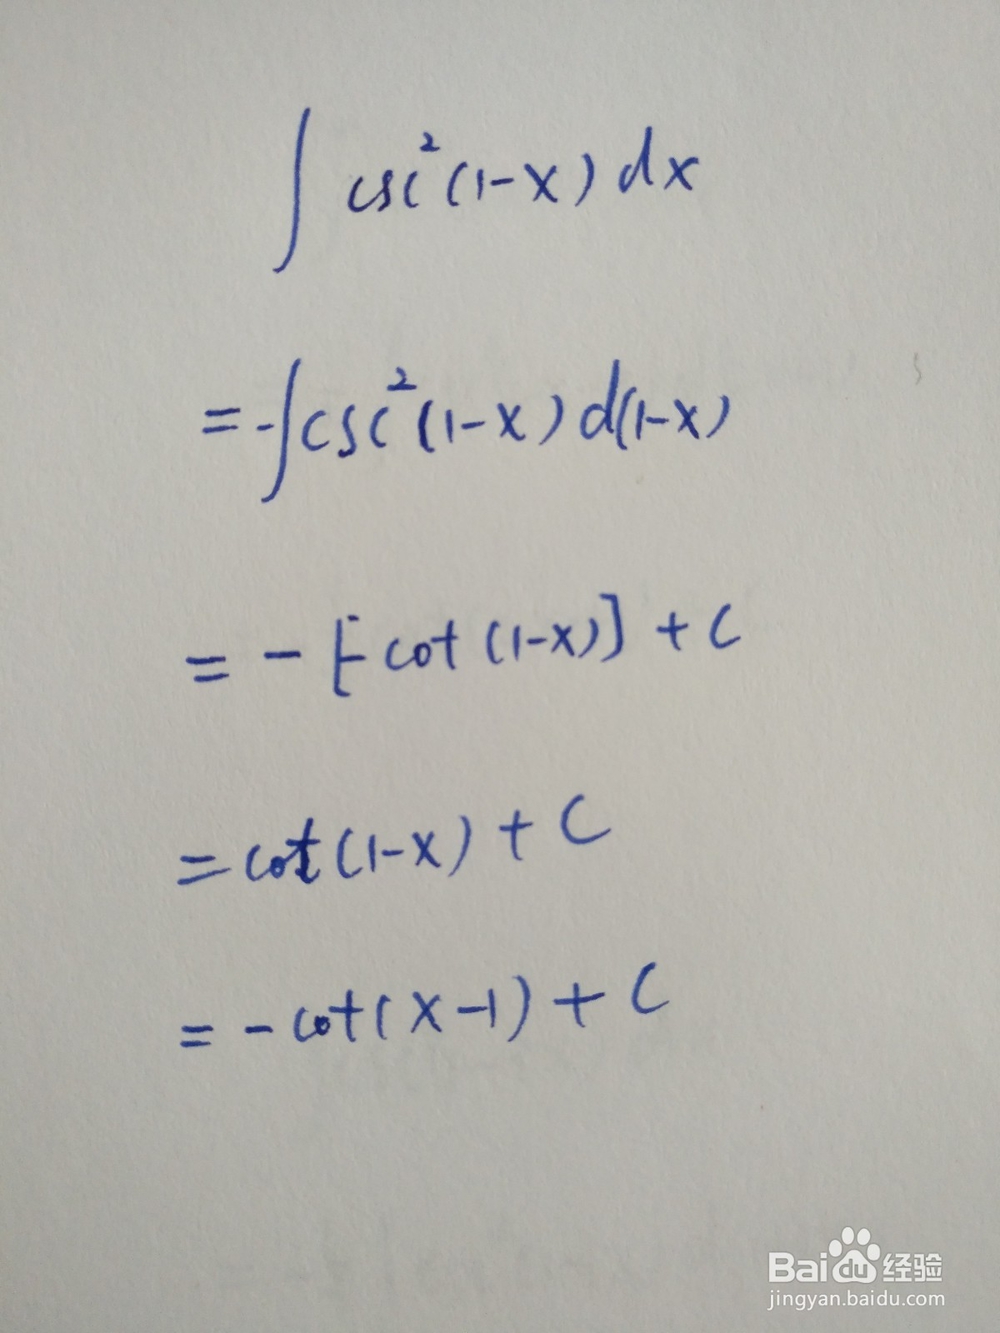 ∫ csc²(1-x) dx
= -∫csc²(1-x) d(1-x)
= - [-cot(1-x)] + C
= cot(1-x) + C
= -cot(x-1) + C
Baidu经验
jingyan.baidu.com